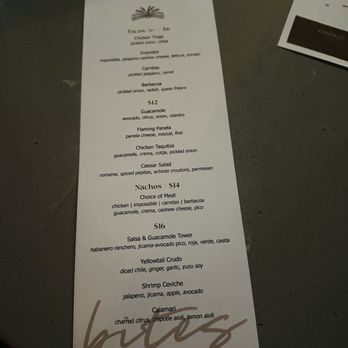 Tacos - $6
Chicken Tinga
pickled onion, cotija
Impostor
impossible, jalapeno cashew cheese, lettuce, tomato
Carnitas
pickled jalapeno, carrot
Barbacoa
pickled onion, radish, queso fresco
$12
Guacamole
avocado, citrus, onion, cilantro
Flaming Panela
panela cheese, mezcal, fire!
Chicken Taquitos
guacamole, crema, cotija, pickled onion
Caesar Salad
romaine, spiced pepitas, achiote croutons, parmesan
Nachos $14
Choice of Meat
chicken | impossible | carnitas | barbacoa
guacamole, crema, cashew cheese, pico
$16
Salsa & Guacamole Tower
habanero ranchero, jicama-avocado pico, roja, verde, casita
Yellowtail Crudo
diced chile, ginger, garlic, yuzu soy
Shrimp Ceviche
jalapeno, jicama, apple, avocado
Calamari
charred citrus, chipotle aioli, lemon aioli
bites